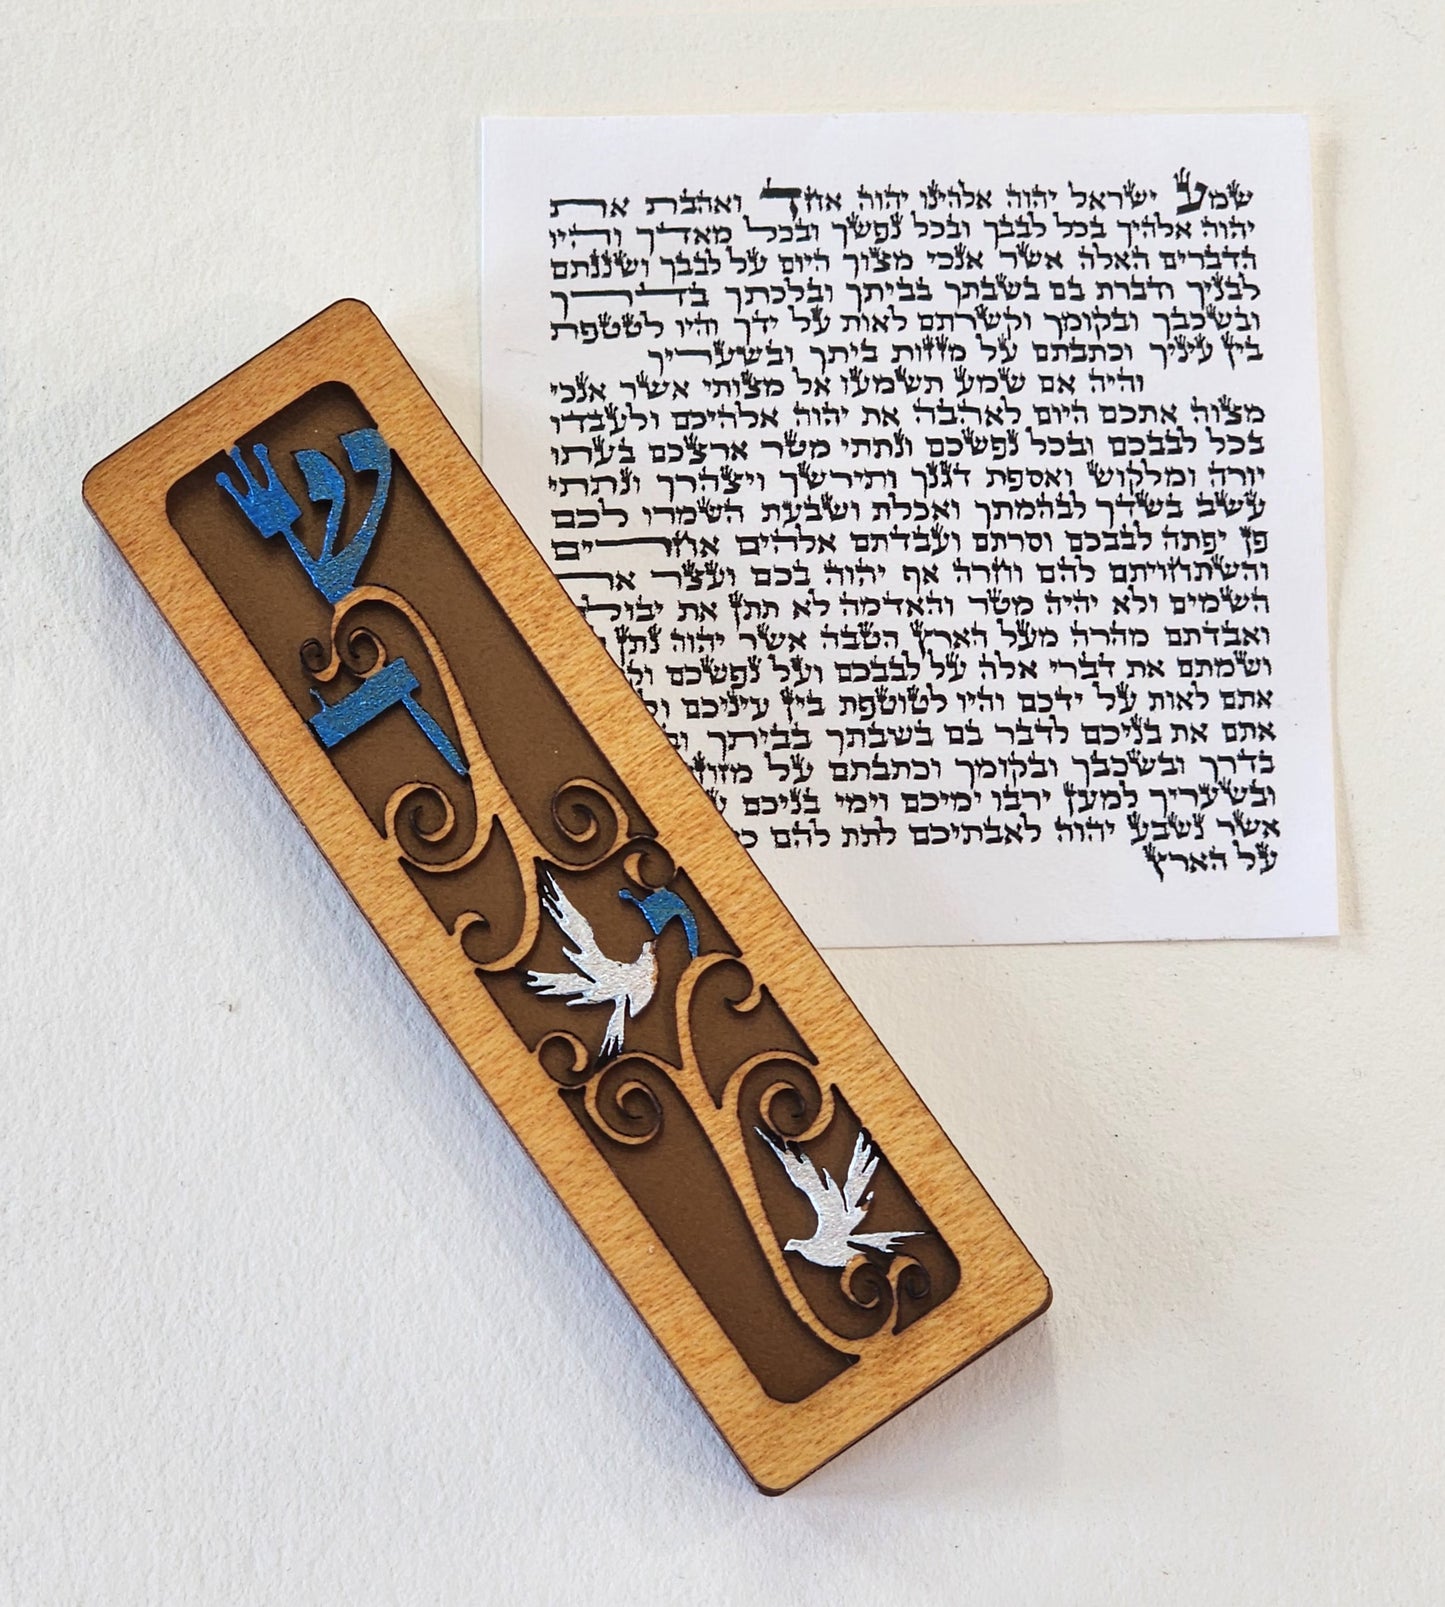 שמע ישראל יהוה אלהינו יהוה אחד ואהבת את
יהוה אלהיך בכל לבבך ובכל נפשך ובכל מאדך והיו
הדברים האלה אשר אנכי מצוך היום על לבבך ושננתם
לבניך ודברת בם בשבתך בביתך ובלכתך בדרך
ובשכבך ובקומך וקשרתם לאות על ידך והיו לטטפת
בין עיניך וכתבתם על מזזות ביתך ובשעריך
והיה אם שמע תשמעו אל מצותי אשר אנכי
מצוה אתכם היום לאהבה את יהוה אלהיכם ולעבדו
בכל לבבכם ובכל נפשכם ונתתי מטר ארצכם בעתו
יורה ומלקוש ואספת דגנך ותירשך ויצהרך ונתתי
עשב בשדך לבהמתך ואכלת ושבעת השמרו לכם
פן יפתה לבבכם וסרתם ועבדתם אלהים אחרים
והשתחויתם להם וחרה אף יהוה בכם ועצר
השמים ולא יהיה מטר והאדמה לא תתן את
ואבדתם מהרה מעל הארץ הטבה אשר יהוה נתן
ושמתם את דברי אלה על לבבכם ועל נפשכם
אתם לאות על ידכם והיו לטוטפת בין עיניכם
אתם את בניכם לדבר בם בשבתך בביתך
בדרך ובשכבך ובקומך וכתבתם על
ובשעריך למען ירבו ימיכם וימי בניכם
אשר נשבע יהוה לאבתיכם לתת להם
על הארץ
ש
ד
י